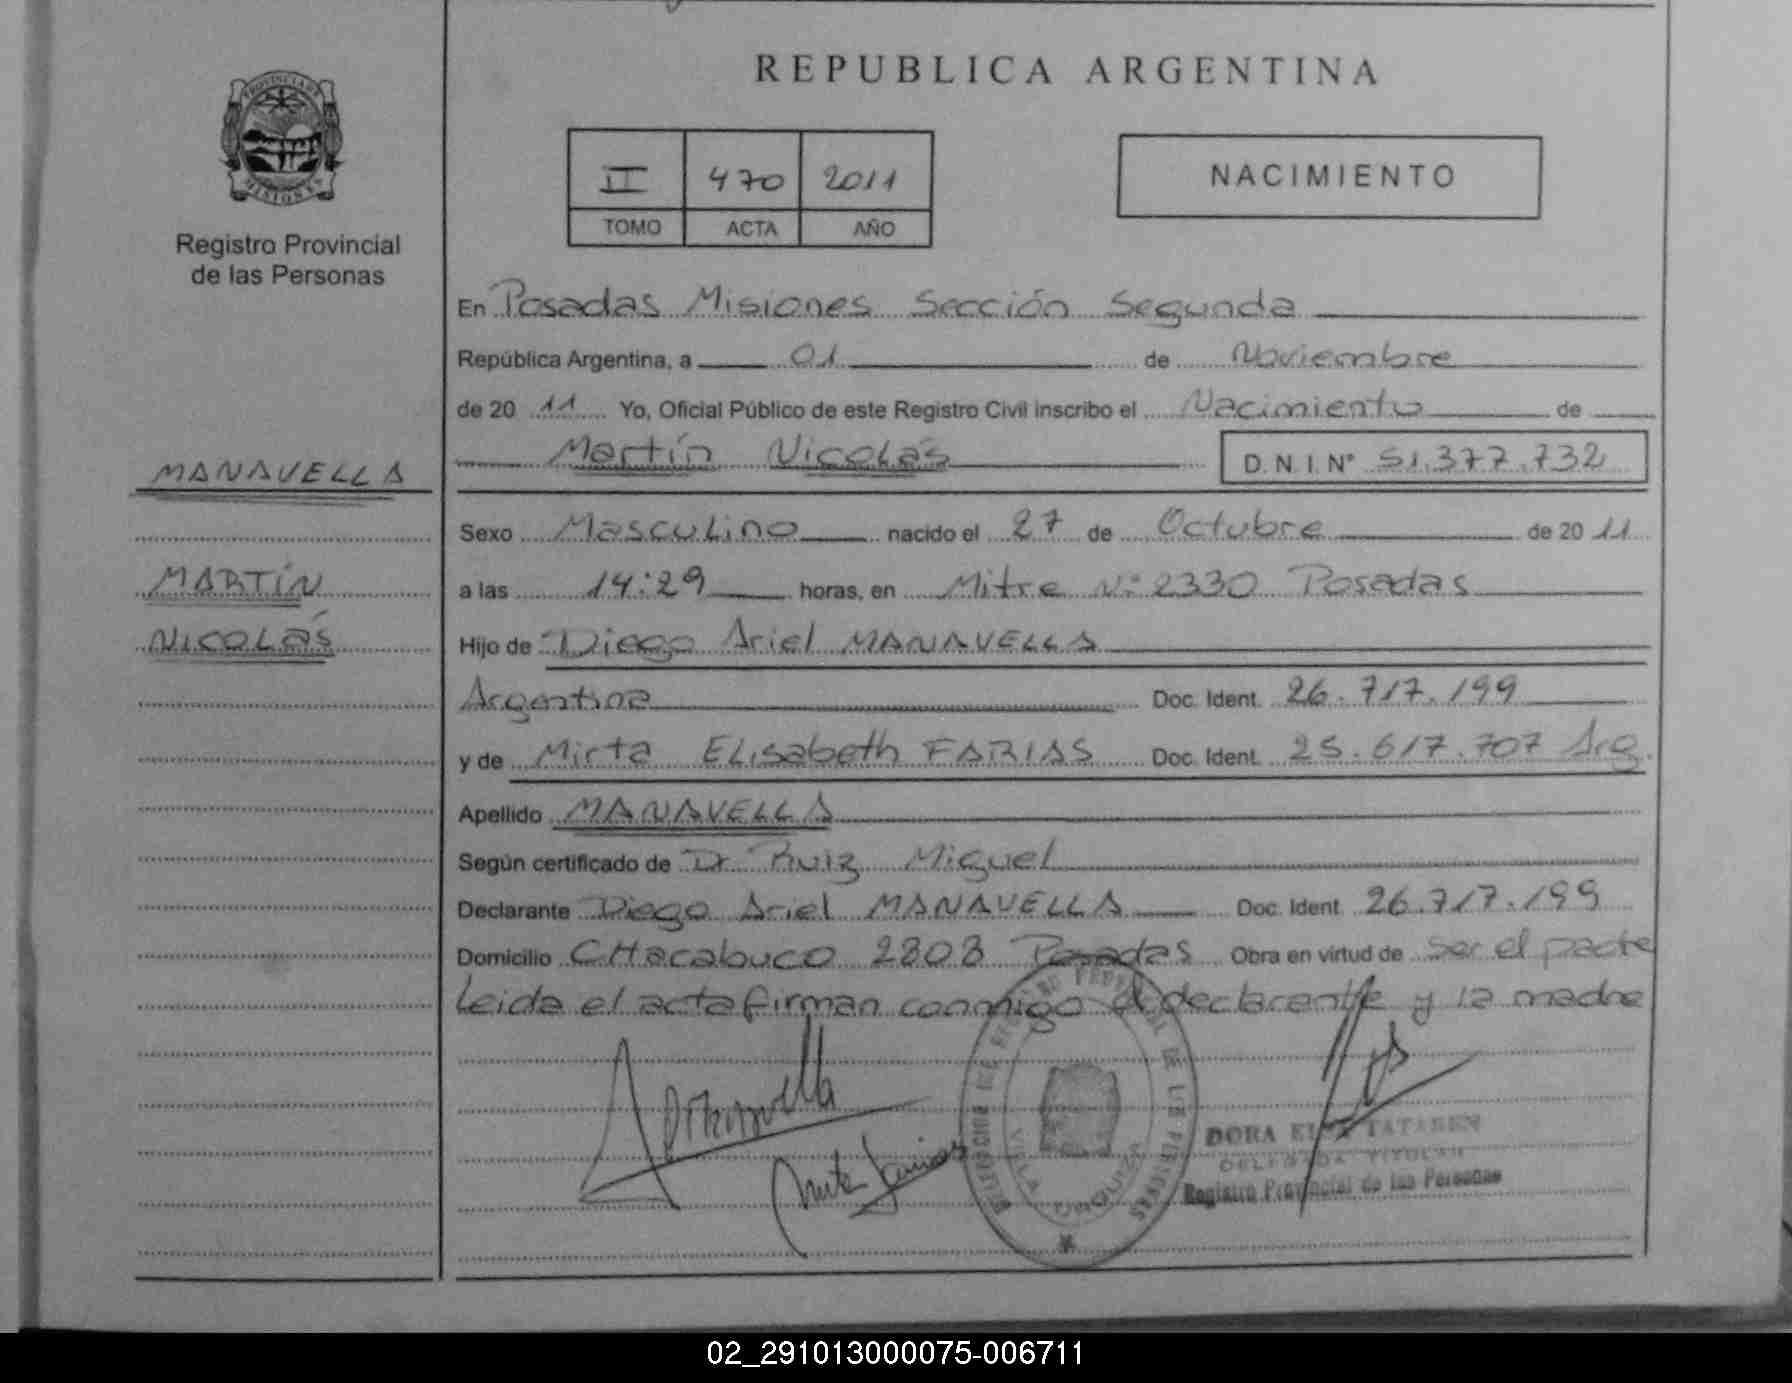 PROVINCIA DE
MISIONES
Registro Provincial
de las Personas
MANAVELLA
MARTÍN
NICOLÁS
REPUBLICA ARGENTINA
II 470 2011
TOMO ACTA AÑO
NACIMIENTO
En Posadas Misiones Sección Segunda
República Argentina, a 01 de Noviembre
de 20 11 Yo, Oficial Público de este Registro Civil inscribo el Nacimiento de
Martín Nicolás D.N.I.N° 51.377.732
Sexo Masculino nacido el 27 de Octubre de 20 11
a las 14:29 horas, en Mitre N° 2330 Posadas
Hijo de Diego Ariel MANAVELLA
Argentina Doc. Ident. 26.717.199
y de Mirta Elisabeth FARIAS Doc. Ident. 25.617.707 Arg.
Apellido MANAVELLA
Según certificado de Dr Ruiz Miguel
Declarante Diego Ariel MANAVELLA Doc. Ident 26.717.199
Domicilio CHacabuco 2808 Posadas Obra en virtud de ser el padre
Leida el acta firman conmigo el declarante y la madre
DORA ELSA
DELEGADA TITULAR
Registro Provincial de las Personas
02_291013000075-006711